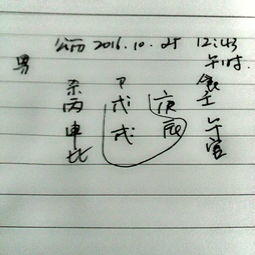 公历 2016.10.25 12:43
男 午时.
杀 P 食
丙 戊 庚 壬
申 戌 辰 午
比 官